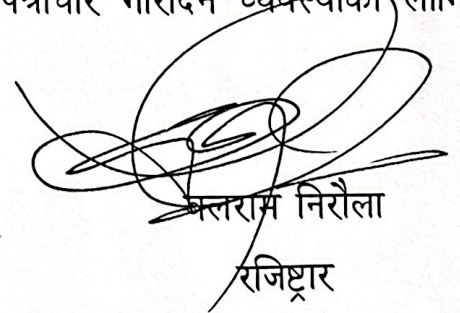 पत्राचार गरिदिने व्यवस्थाको लागि
बलराम निरौला
रजिष्ट्रार